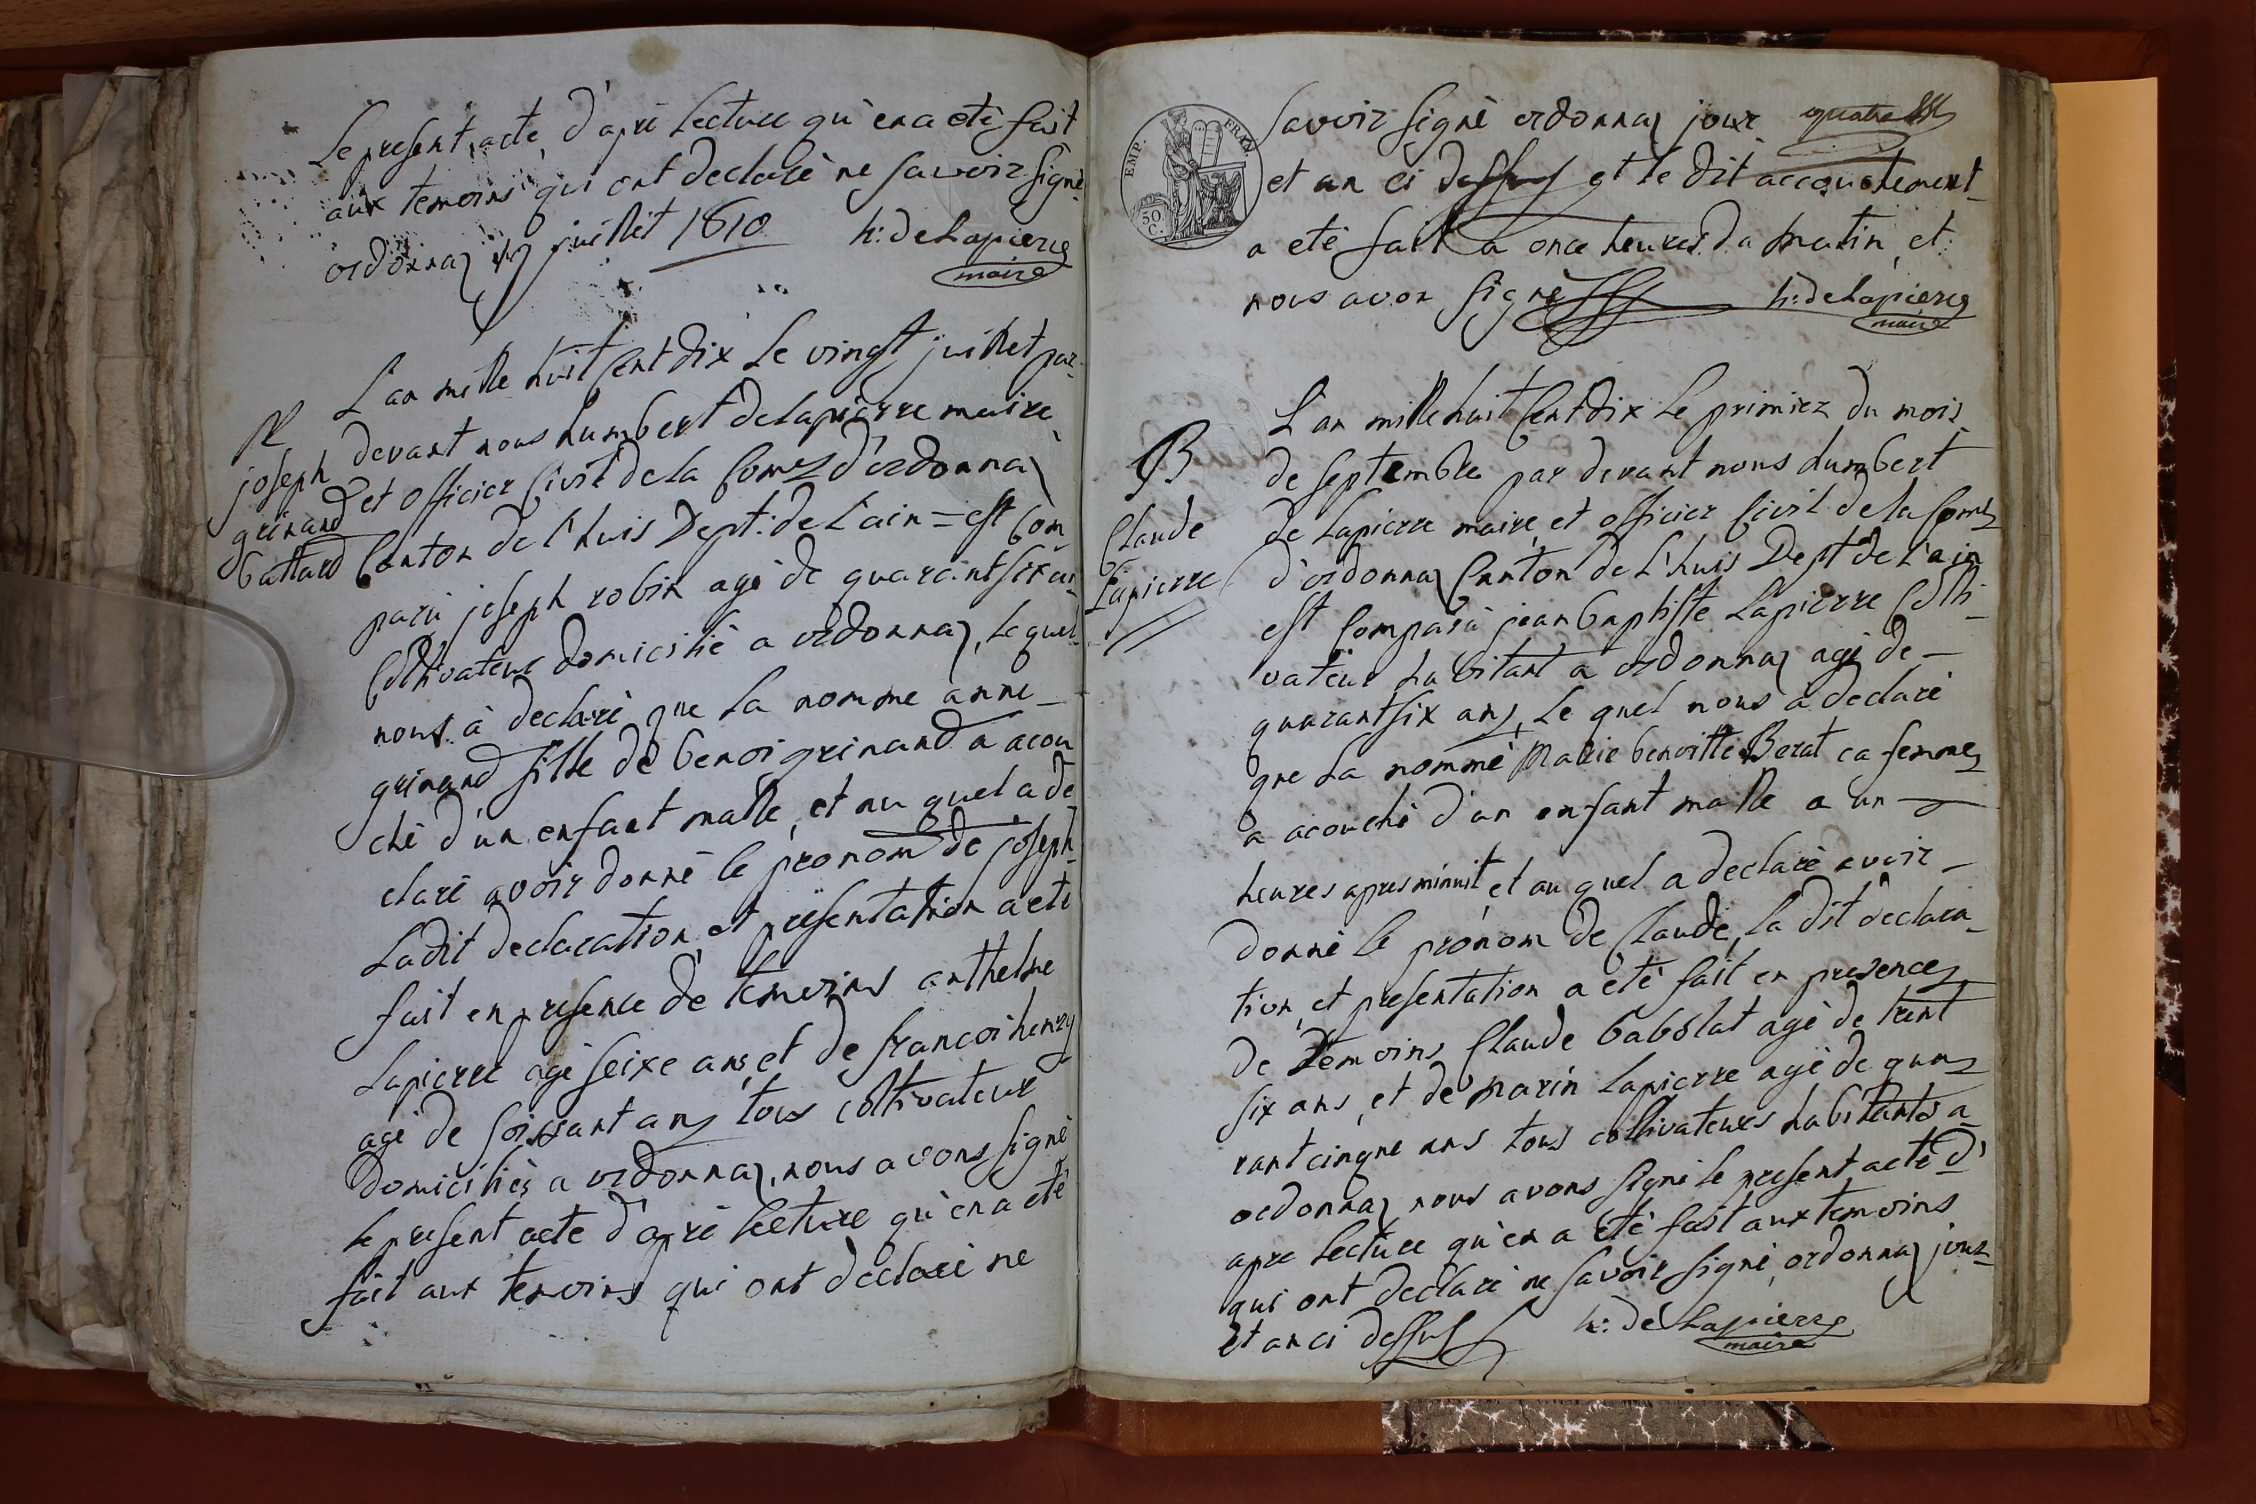 Le present acte d'aprè Lecture qu'en a etè fait
aux temoins qui ont declarè ne savoir signè
ordonnaz juillet 1810 h: deLapierre
maire
L'an mille huit Cent dix Le vingt juillet par
devant nous humbert delapierre maire
et officier Civil de la Com.e d'ordonnaz
Canton de L'huis Dept: de L'ain = est Com
paru joseph robin agè de quarantsix an
Coltivateur domicilié a ordonnaz, Le quel
nous à declarè que La nomme anne
grinand fille de benoi grinand a acou
chè d'un enfant malle, et au quel a dé
clarè avoir donnè le pronom de joseph
Ladit declaration et presentation a etè
fait en presence de temoins anthelme
Lapierre agè seixe ans et de francoi henry
agè de soissant ans tous coltivateur
domiciliés a ordonnaz, nous avons signè
le present acte d'aprè lecture qu'en a etè
fait aux temoins qui ont declarè ne
N
joseph
grinand
battard
EMP. FRAN.
50 C.
savoir signè ordonnaz jour quatre
et an ci dessus et le dit accouchement
a etè fait a once heures da matin et
nous avon signè h: deLapierre
maire
L'an mille huit Cent dix Le primier du mois
de septembre par devant nous humbert
de Lapierre maire, et officier Civil de la Com.e
d'ordonnaz Canton de L'huis Dept de L'ain
est Comparu jean baptiste Lapierre Colti-
vateur habitant a ordonnaz agè de
quarantsix ans, Le quel nous a declarè
que La nommè Marie benoitte Berat ca femme
a acouchè d'un enfant malle a un
heures apres minuit, et au quel a declarè avoir
donnè le pronom de Claude, La dit declara-
tion, et presentation a etè fait en presence
de temoins Claude babolat agè de trent
six ans, et de marin Lapierre agè de qua
rant cinque ans tous coltivateurs habitants a
ordonnaz nous avons signè le present acte d'
apre Lecture qu'en a etè fait aux temoins
qui ont declarè ne savoir signè, ordonnaz jour
et an ci dessus h: de Lapierre
maire
B
Claude
Lapierre